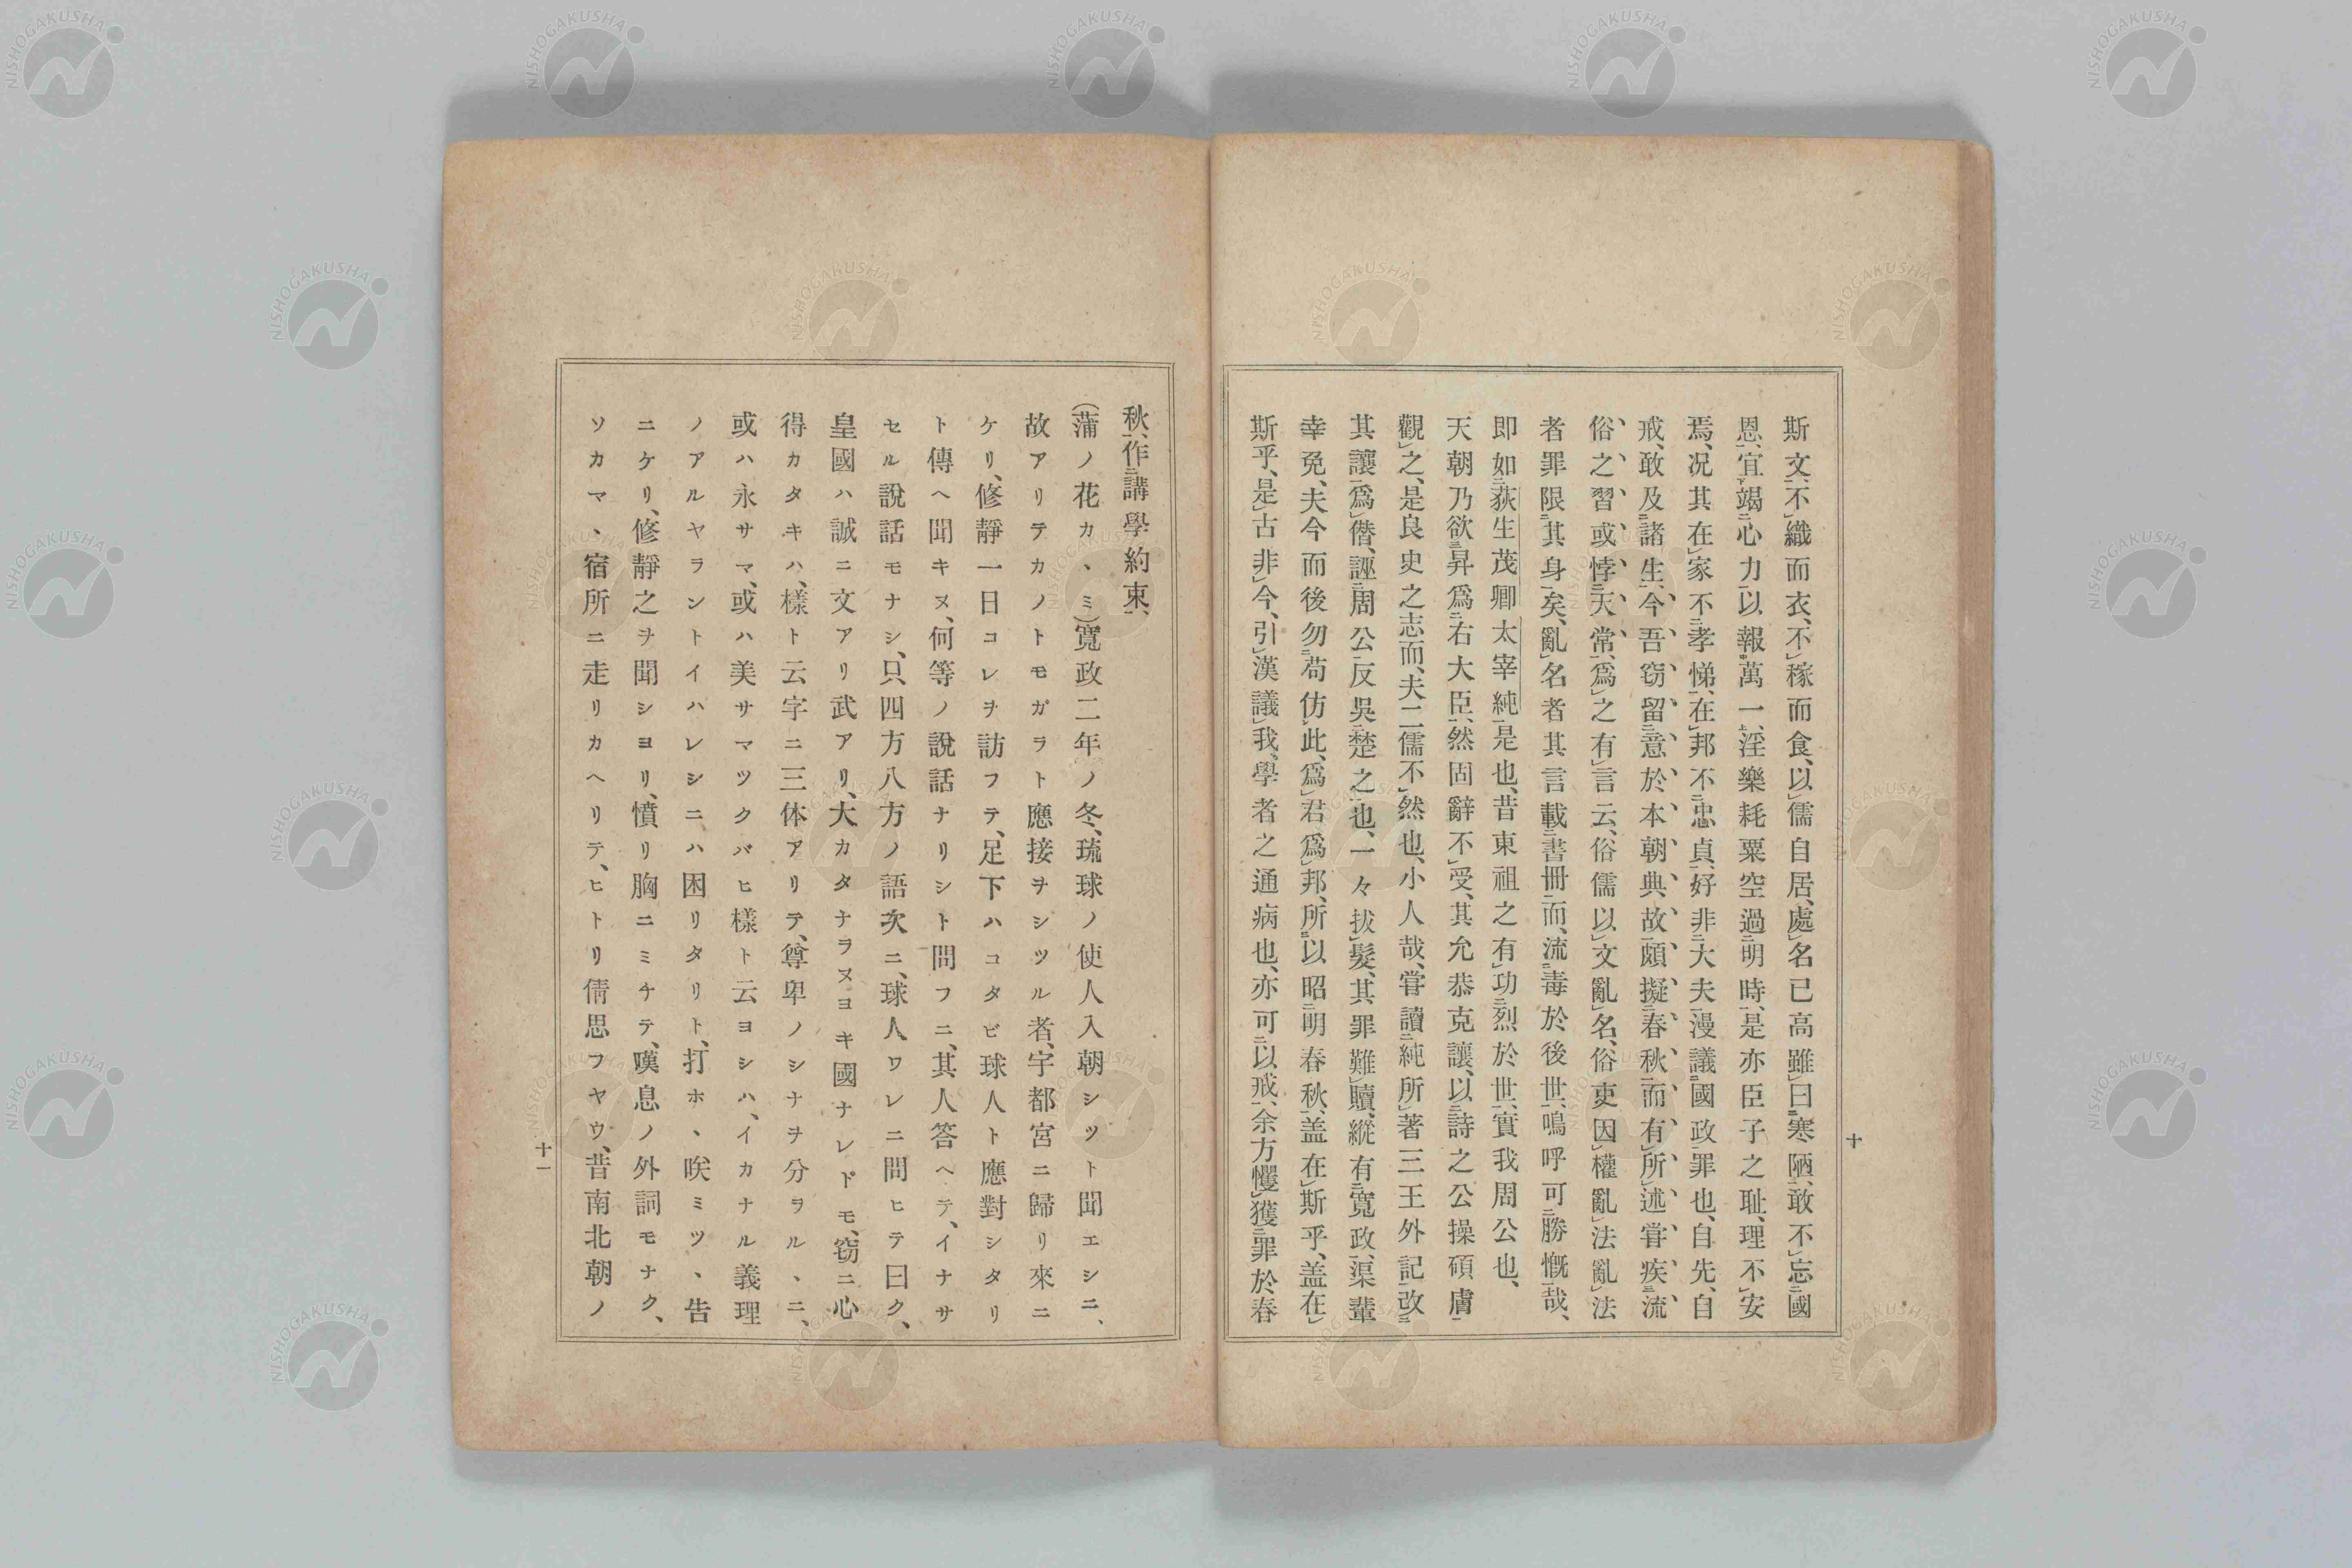 斯文、不織而衣、不稼而食、以儒自居、處名已高雖曰寒陋、敢不忘國
恩、宜竭心力以報萬一、淫樂耗粟空過明時、是亦臣子之耻、理不安
焉、况其在家不孝悌、在邦不忠貞、好非大夫漫議國政罪也、自先、自
戒、敢及諸生、今吾窃留意於本朝典故、頗擬春秋而有所述嘗疾流
俗之習或悖天常、爲之有言云、俗儒以文亂名、俗吏因權亂法亂法
者罪限其身矣、亂名者其言載書冊而、流毒於後世、嗚呼可勝慨哉、
即如荻生茂卿太宰純是也、昔東祖之有功烈於世、實我周公也、
天朝乃欲昇爲右大臣、然固辭不受、其允恭克讓、以詩之公操碩膚
觀之、是良史之志而、夫二儒不然也、小人哉、嘗讀純所著三王外記改
其讓爲僭、誣周公反吳楚之也、一々拔髮、其罪難贖、縱有寬政、渠輩
幸免、夫今而後勿苟仿此、爲君、爲邦、所以昭明春秋、盖在斯乎、盖在
斯乎、是古非今、引漢議我、學者之通病也、亦可以戒、余方懼獲罪於春
十
秋、作講學約束、
(蒲ノ花カヽミ)寬政二年ノ冬、琉球ノ使人入朝シツト聞エシニ、
故アリテカノトモガラト應接ヲシツル者、宇都宮ニ歸リ來ニ
ケリ、修靜一日コレヲ訪フテ、足下ハコタビ球人ト應對シタリ
ト傳ヘ聞キヌ、何等ノ說話ナリシト問フニ、其人答ヘテ、イナサ
セル說話モナシ、只四方八方ノ語次ニ、球人ワレニ問ヒテ曰ク、
皇國ハ誠ニ文アリ武アリ、大カタナラヌヨキ國ナレドモ、窃ニ心
得カタキハ、樣ト云字ニ三体アリテ、尊卑ノシナヲ分ヲルヽニ、
或ハ永サマ、或ハ美サマツクバヒ樣ト云ヨシハ、イカナル義理
ノアルヤラントイハレシニハ困リタリト、打ホヽ咲ミツヽ告
ニケリ、修靜之ヲ聞シヨリ、憤リ胸ニミチテ、嘆息ノ外詞モナク、
ソカマヽ宿所ニ走リカヘリテ、ヒトリ倩思フヤウ、昔南北朝ノ
十一